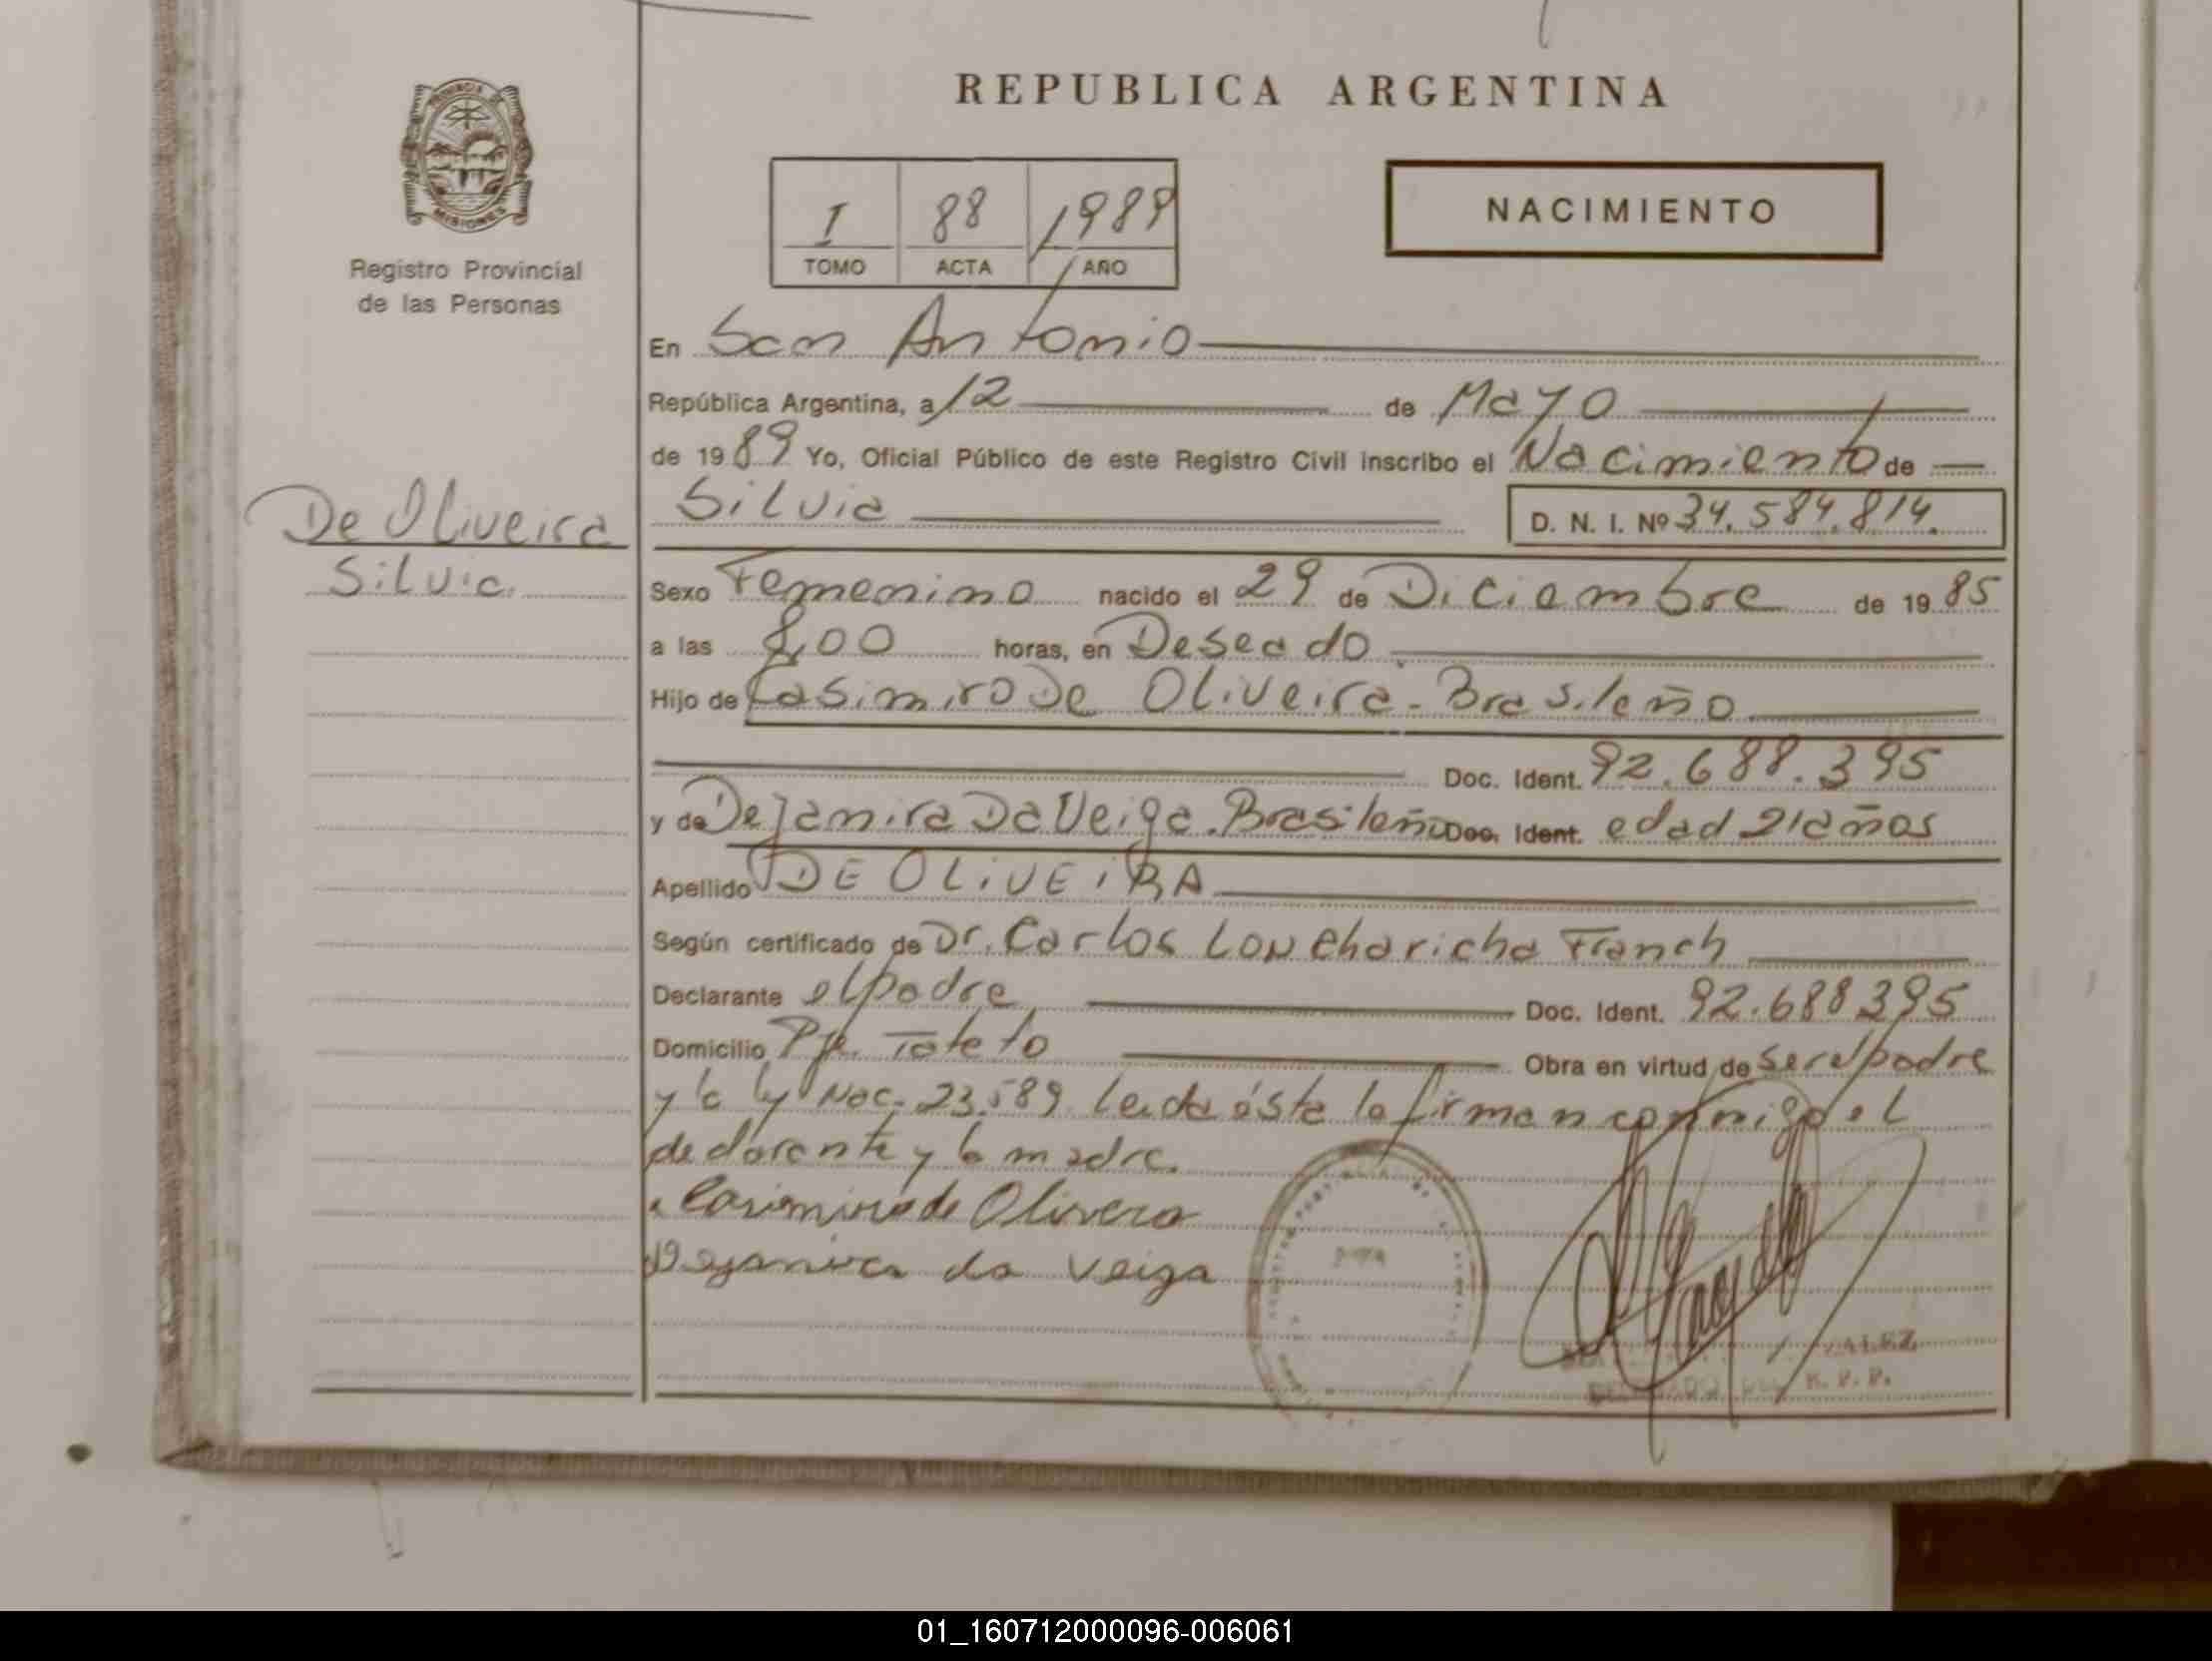 REPUBLICA ARGENTINA
PROVINCIA DE
MISIONES
Registro Provincial
de las Personas
I 88 1989
TOMO ACTA AÑO
NACIMIENTO
En San Antonio
República Argentina, a 12 de Mayo
de 1989 Yo, Oficial Público de este Registro Civil inscribo el Nacimiento de
Silvia D. N. I. Nº 34.584.814.
De Oliveira
Silvia
Sexo Femenino nacido el 29 de Diciembre de 1985
a las 8,00 horas, en Deseado
Hijo de Casimiro De Oliveira - Brasileño
Doc. Ident. 92.688.395
y de Dejamira Da Veiga. Brasileña Doc. Ident. edad 21 años
Apellido DE OLIVEIRA
Según certificado de Dr. Carlos Loncharicha Franch
Declarante el padre Doc. Ident. 92.688395
Domicilio Pje. Tateto Obra en virtud de ser el padre
y la ley Nac. 23.589 leida ésta la firman conmigo el
declarante y la madre.
Casimiro de Olivera
Dejanira da Veiga
R. P. P.
01_160712000096-006061